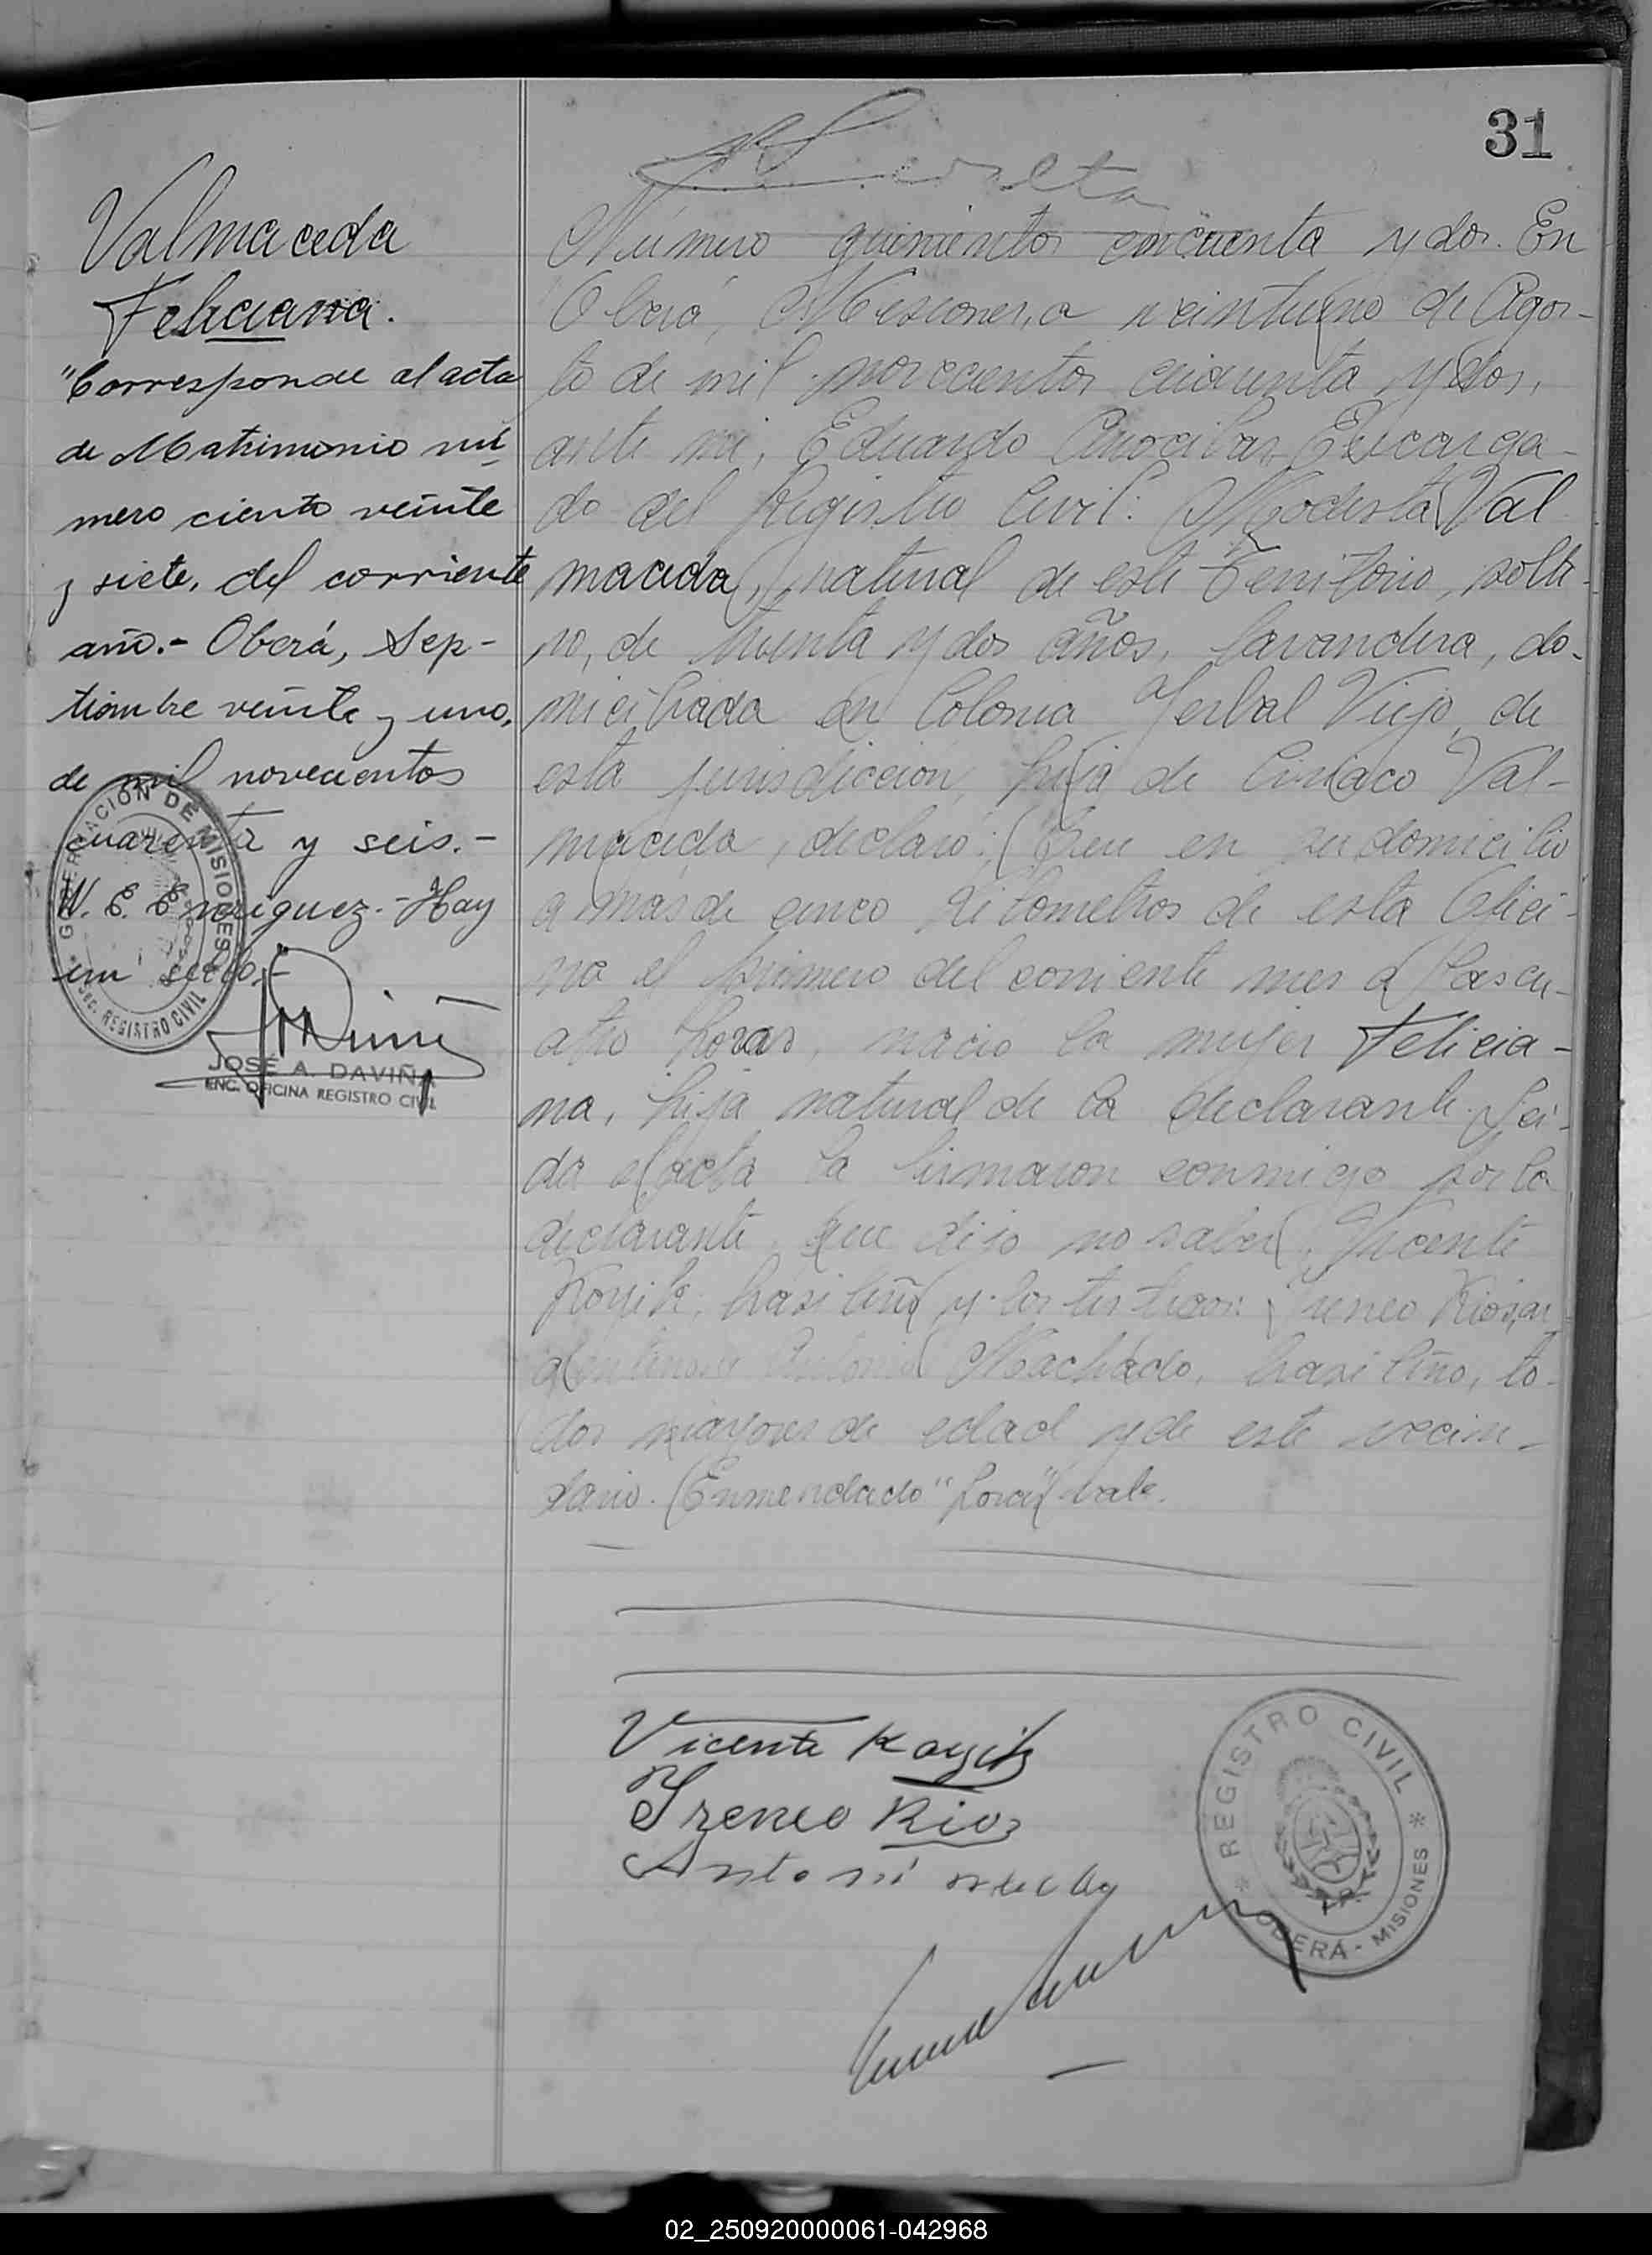 31
Valmaceda
Feliciana.
"Corresponde al acta
de Matrimonio nú
mero ciento veinte
y siete, del corriente
año.- Oberá, Sep-
tiembre veinte y uno,
de mil novecientos
cuarenta y seis.-
W. E. Enriguez.- Hay
un sello.-
GOBERNACIÓN DE MISIONES
SEC. REGISTRO CIVIL
JOSÉ A. DAVIÑA
ENC. OFICINA REGISTRO CIVIL
Número quinientos cincuenta y dos. En
Oberá, Misiones, a veintiuno de Agos-
to de mil novecientos y dos,
ante mi, Eduardo Encarga-
do del Registro Civil: Modesta Val
maceda, natural de este Territorio, solte-
ro, de treinta y dos años, lavandera, do-
miciliada en Colonia Yerbal Viejo, de
esta jurisdicción, hija de Ciriaco Val-
maceda, declaró: Que en su domicilio
a más de cinco kilometros de esta Ofici-
na el primero del corriente mes a las cu-
atro horas, nació la mujer Felicia-
na, hija natural de la declarante. Leí-
da el acta la firmaron conmigo por la
declarante que dijo no saber, Vicente
Koyik, brasileño y los testigos: Ireneo Rios, ar
gentino y Antonio Machado, brasileño, to-
dos mayores de edad y de este vecin-
dario. Enmendado "horas" vale.
Vicente Koyik
Ireneo Rios
Antoni
REGISTRO CIVIL
OBERÁ - MISIONES
02_250920000061-042968